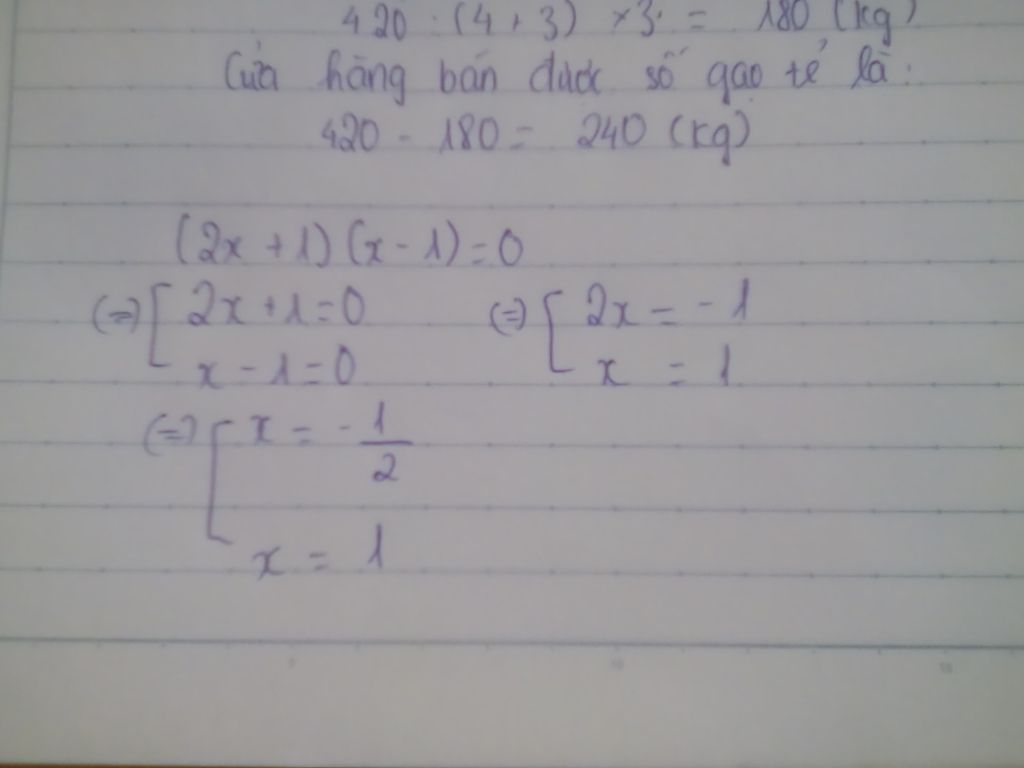 420 : (4 + 3) × 3 = 180 (kg)
Cửa hàng bán được số gạo tẻ là:
420 - 180 = 240 (kg)
(2x + 1) (x - 1) = 0
(=) [ 2x + 1 = 0 (=) [ 2x = - 1
x - 1 = 0 x = 1
(=) [ x = - 1/2
x = 1